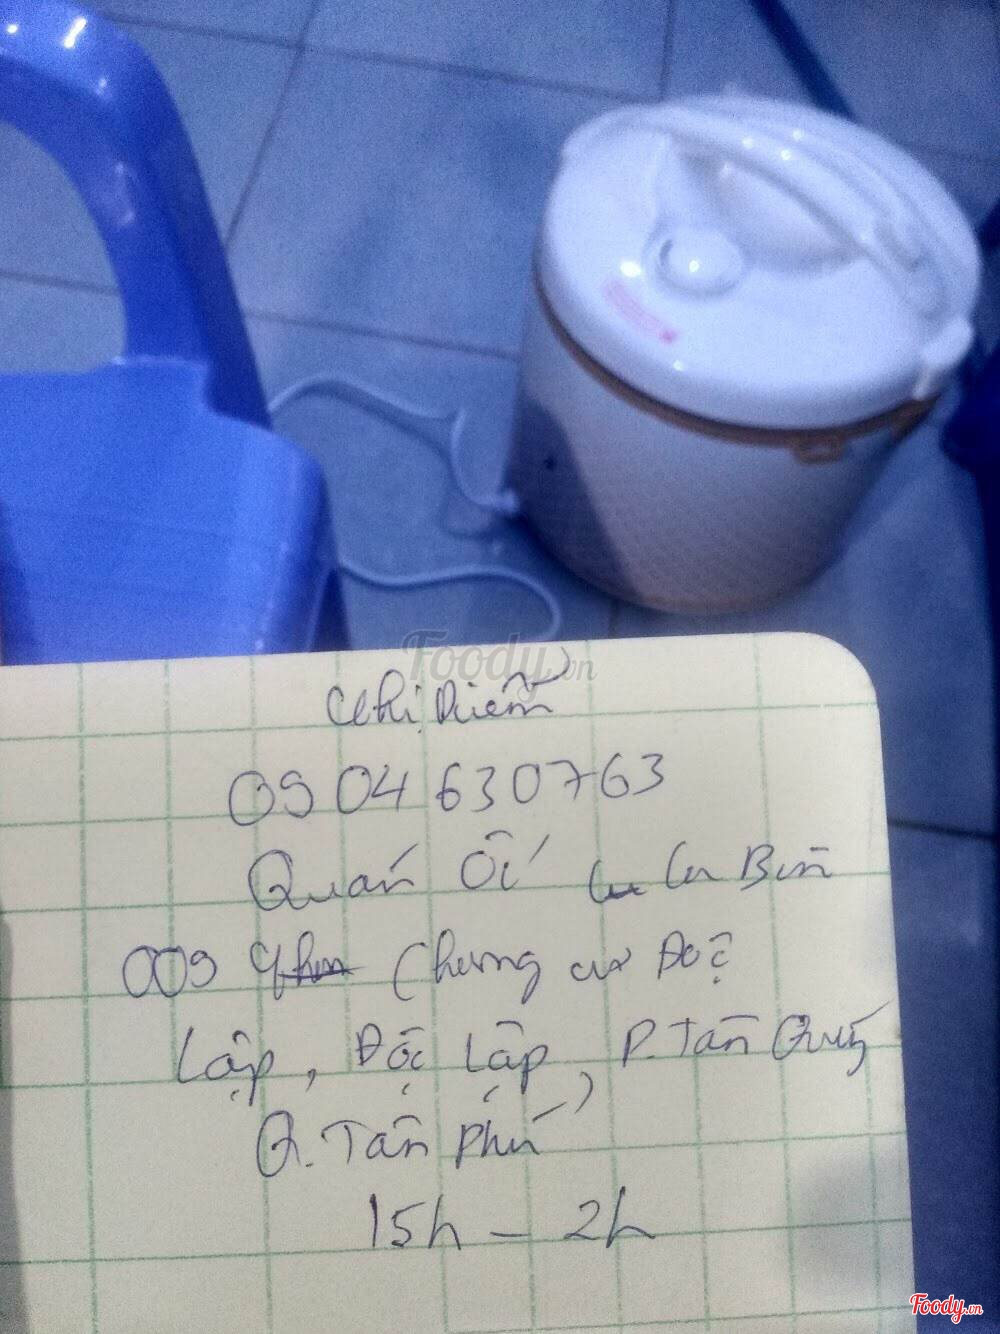 Foody.vn
Chị Diễm
0904 630763
Quán Ốc Cu Bin
009 Chung cư Độc
Lập, Độc Lập, P. Tân Quý,
Q. Tân Phú
15h - 2h
Foody.vn